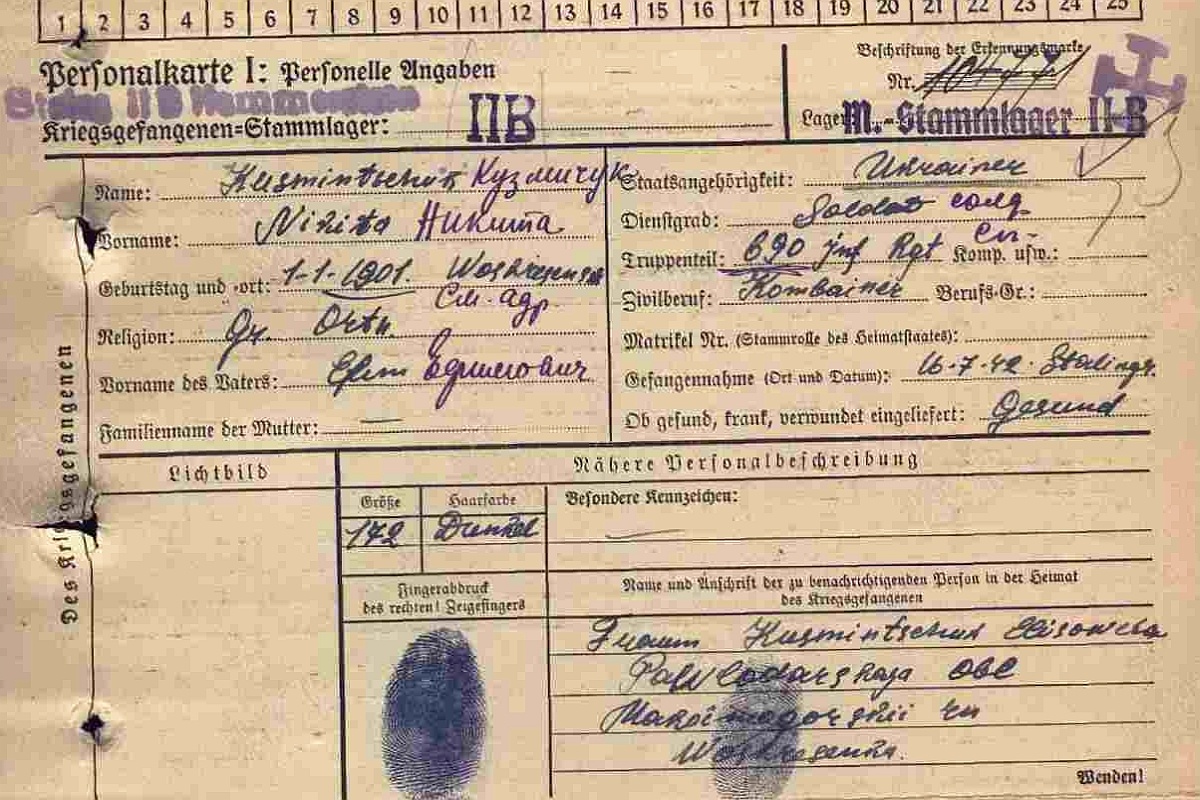 1 2 3 4 5 6 7 8 9 10 11 12 13 14 15 16 17 18 19 20 21 22 23 24 25
Personalkarte I: Personelle Angaben
Stalag II B Hammerstein
Kriegsgefangenen=Stammlager: IIB
Beschriftung der Erkennungsmarke
Nr.
Lager: M.-Stammlager II-B
Des Kriegsgefangenen
Name: Kusmintschuk Кузмичук
Vorname: Nikita Никита
Geburtstag und -ort: 1-1-1901. Woskresenka
См. адр
Religion: Gr. Orth.
Vorname des Vaters: Efim
Familienname der Mutter: —
Staatsangehörigkeit: Ukrainer
Dienstgrad: Soldat солд
Truppenteil: 690 jnf Rgt Komp. usw.:
Zivilberuf: Kombainer Berufs-Gr.:
Matrikel Nr. (Stammrolle des Heimatstaates):
Gefangennahme (Ort und Datum): 16-7-42. Stalingr.
Ob gesund, krank, verwundet eingeliefert: Gesund
Lichtbild
Nähere Personalbeschreibung
Größe Haarfarbe Besondere Kennzeichen:
172 Dunkel —
Fingerabdruck
des rechten! Zeigefingers
Name und Anschrift der zu benachrichtigenden Person in der Heimat
des Kriegsgefangenen
Frau Kusmintschuk
Pawlodarskaja Obl
Woskresenka.
Wenden!